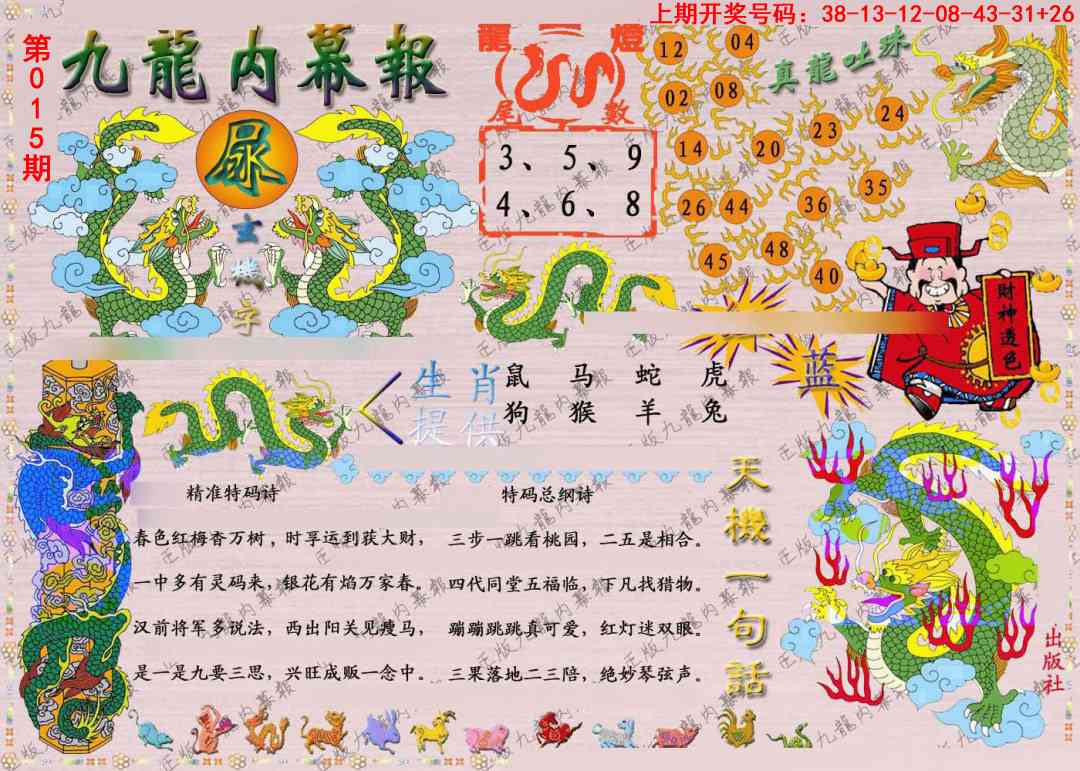 上期开奖号码：38-13-12-08-43-31+26
第015期
九龍内幕報
尿
玄機字
龍 燈
尾 數
3、5、9
4、6、8
真龍吐珠
12 04
02 08
24
23
14 20
35
26 44 36
48
45 40
财神透色
蓝
生肖
提供
鼠 马 蛇 虎
狗 猴 羊 兔
精准特码诗
春色红梅香万树，时孚运到获大财，
一中多有灵码来，银花有焰万家春。
汉前将军多说法，西出阳关见瘦马，
是一是九要三思，兴旺成贩一念中。
特码总纲诗
三步一跳看桃园，二五是相合。
四代同堂五福临，下凡找猎物。
蹦蹦跳跳真可爱，红灯迷双眼。
三果落地二三陪，绝妙琴弦声。
天機一句話
出版社
正版九龍内幕報